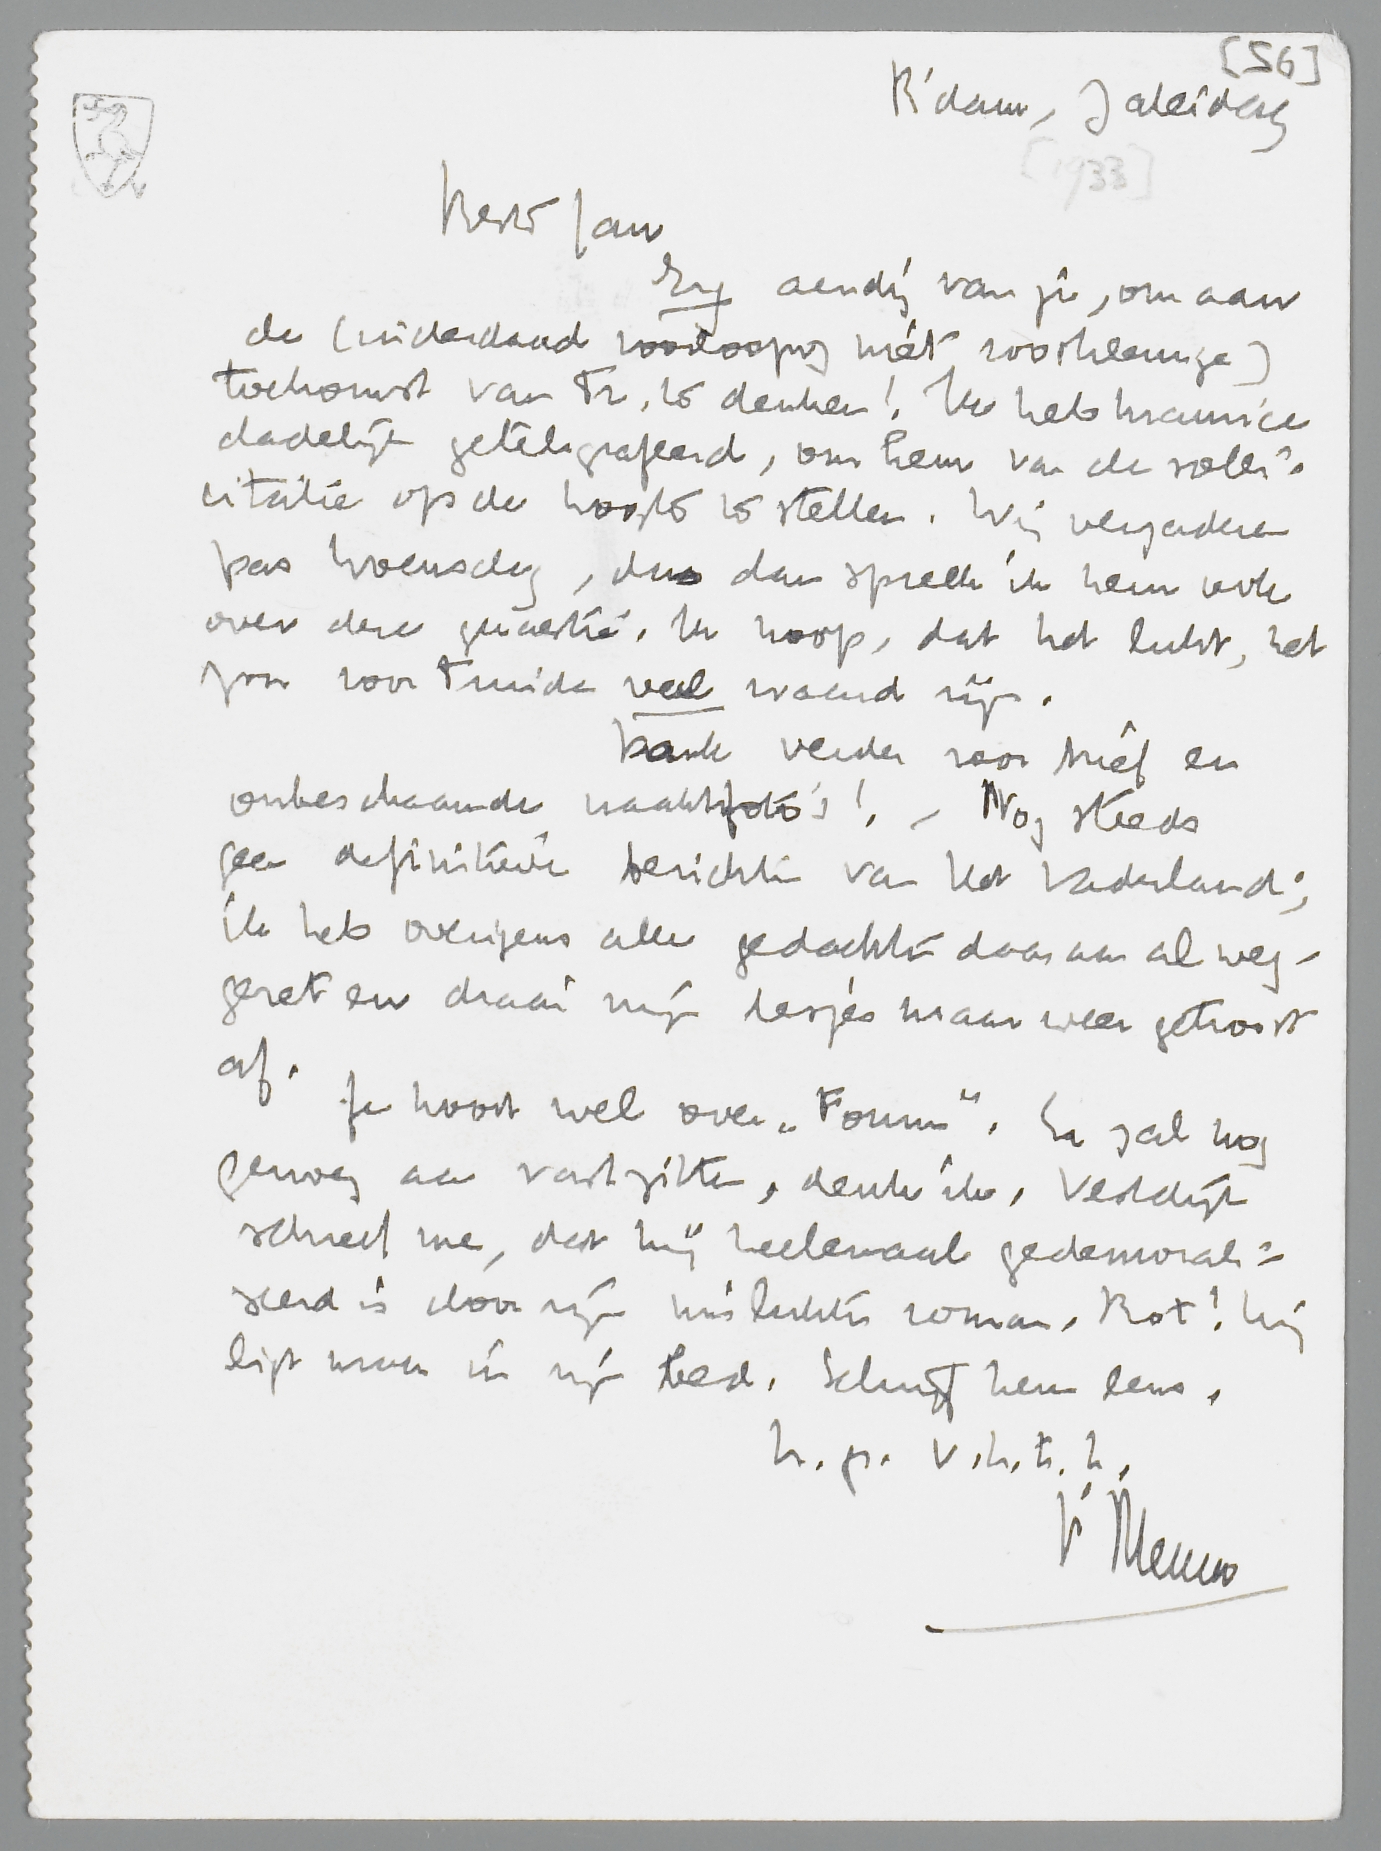 [56]
R'dam, Zaterdag
[1933]
Beste Jan
Erg aardig van je, om aan
de (inderdaad voorloopig niét rooskleurige)
toekomst van Tr. te denken! Ik heb Maurice
dadelijk getelegrafeerd, om hem van de solli-
citatie op de hoogte te stellen. Wij vergaderen
pas Woensdag, dus dan spreek ik hem ook
over deze quaestie. Ik hoop, dat het lukt, het
zou voor Truida veel waard zijn.
Dank verder voor brief en
onbeschaamde naaktfoto's! - Nog steeds
geen definitieve berichten van Het Vaderland;
ik heb overigens alle gedachten daaraan al weg-
gezet en draai mijn lesjes maar weer getroost
af.
Je hoort wel over „Forum". Er zal nog
genoeg aan vastzitten, denk ik. Vestdijk
schreef me, dat hij heelemaal gedemorali-
seerd is door zijn mislukte roman. Rot! Hij
ligt maar in zijn bed. Schrijf hem eens.
h. p. v. h. t. h.
je Menno